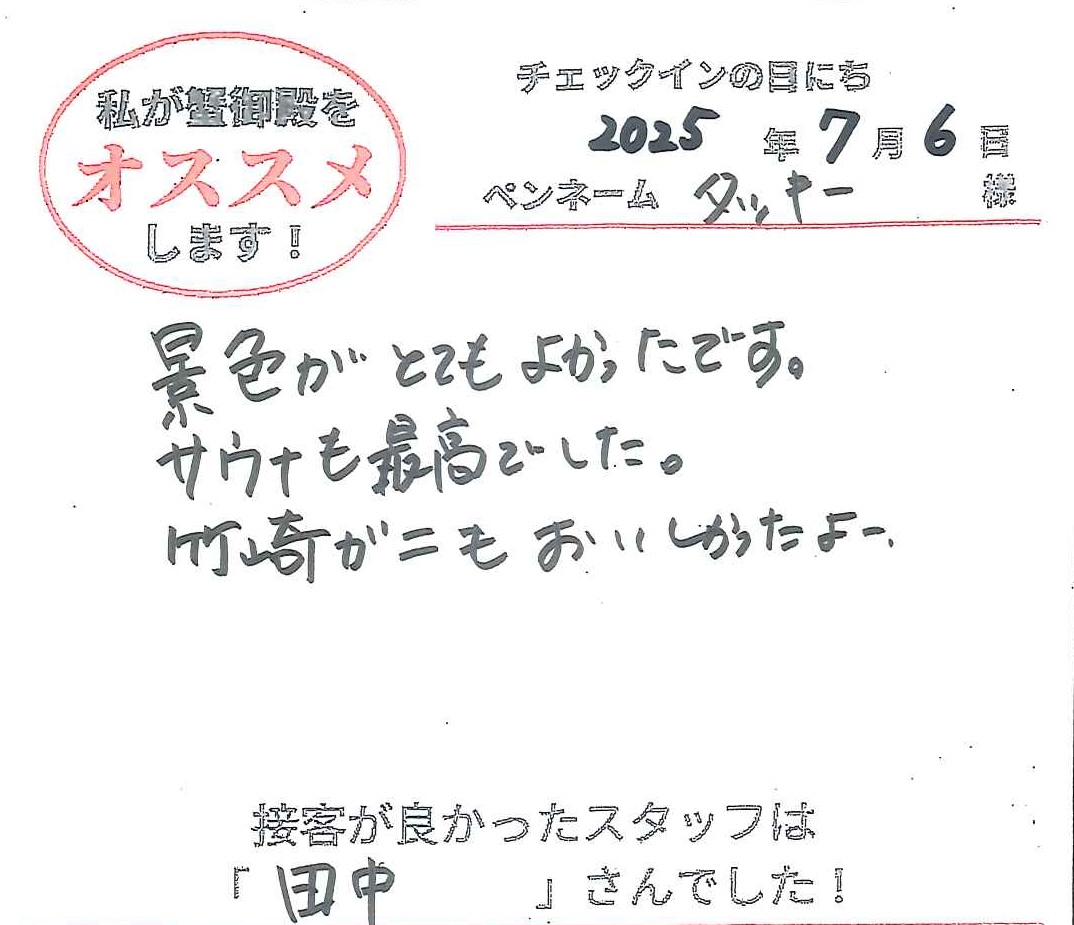 私が蟹御殿を
オススメ
します！
チェックインの日にち
2025 年 7 月 6 日
ペンネーム タッキー 様
景色がとてもよかったです。
サウナも最高でした。
竹崎がニもおいしかったよー、
接客が良かったスタッフは
「田中」さんでした！